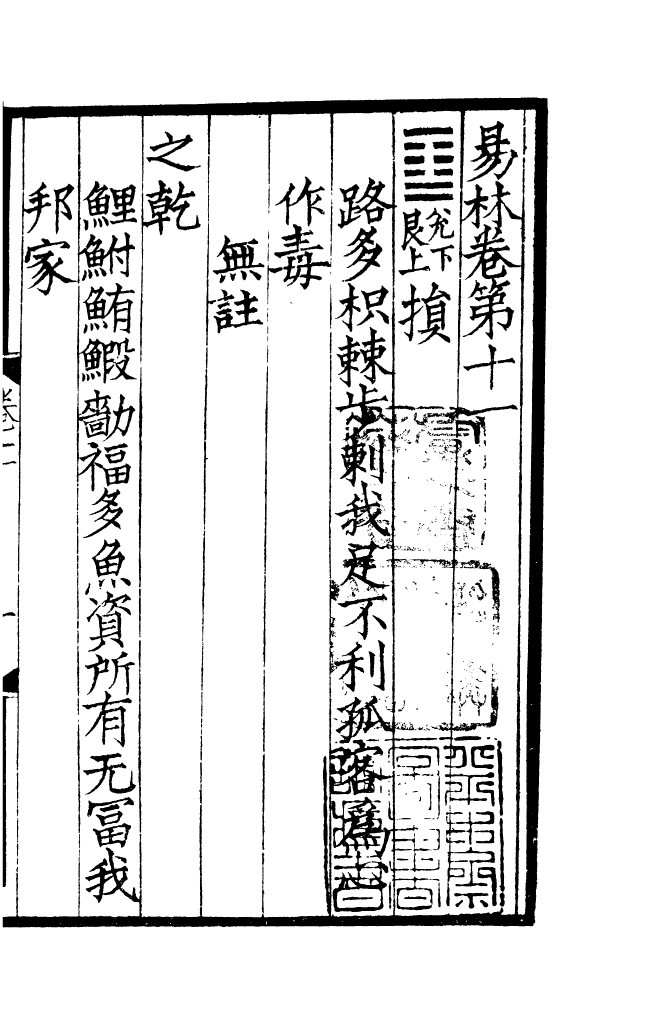 易林卷第十一
䷨兌下艮上損
路多枳棘步剌我足不利孤客為心
作毒
無註
之乾
鯉鮒鮪鰕福多魚資所有无冨我
邦家